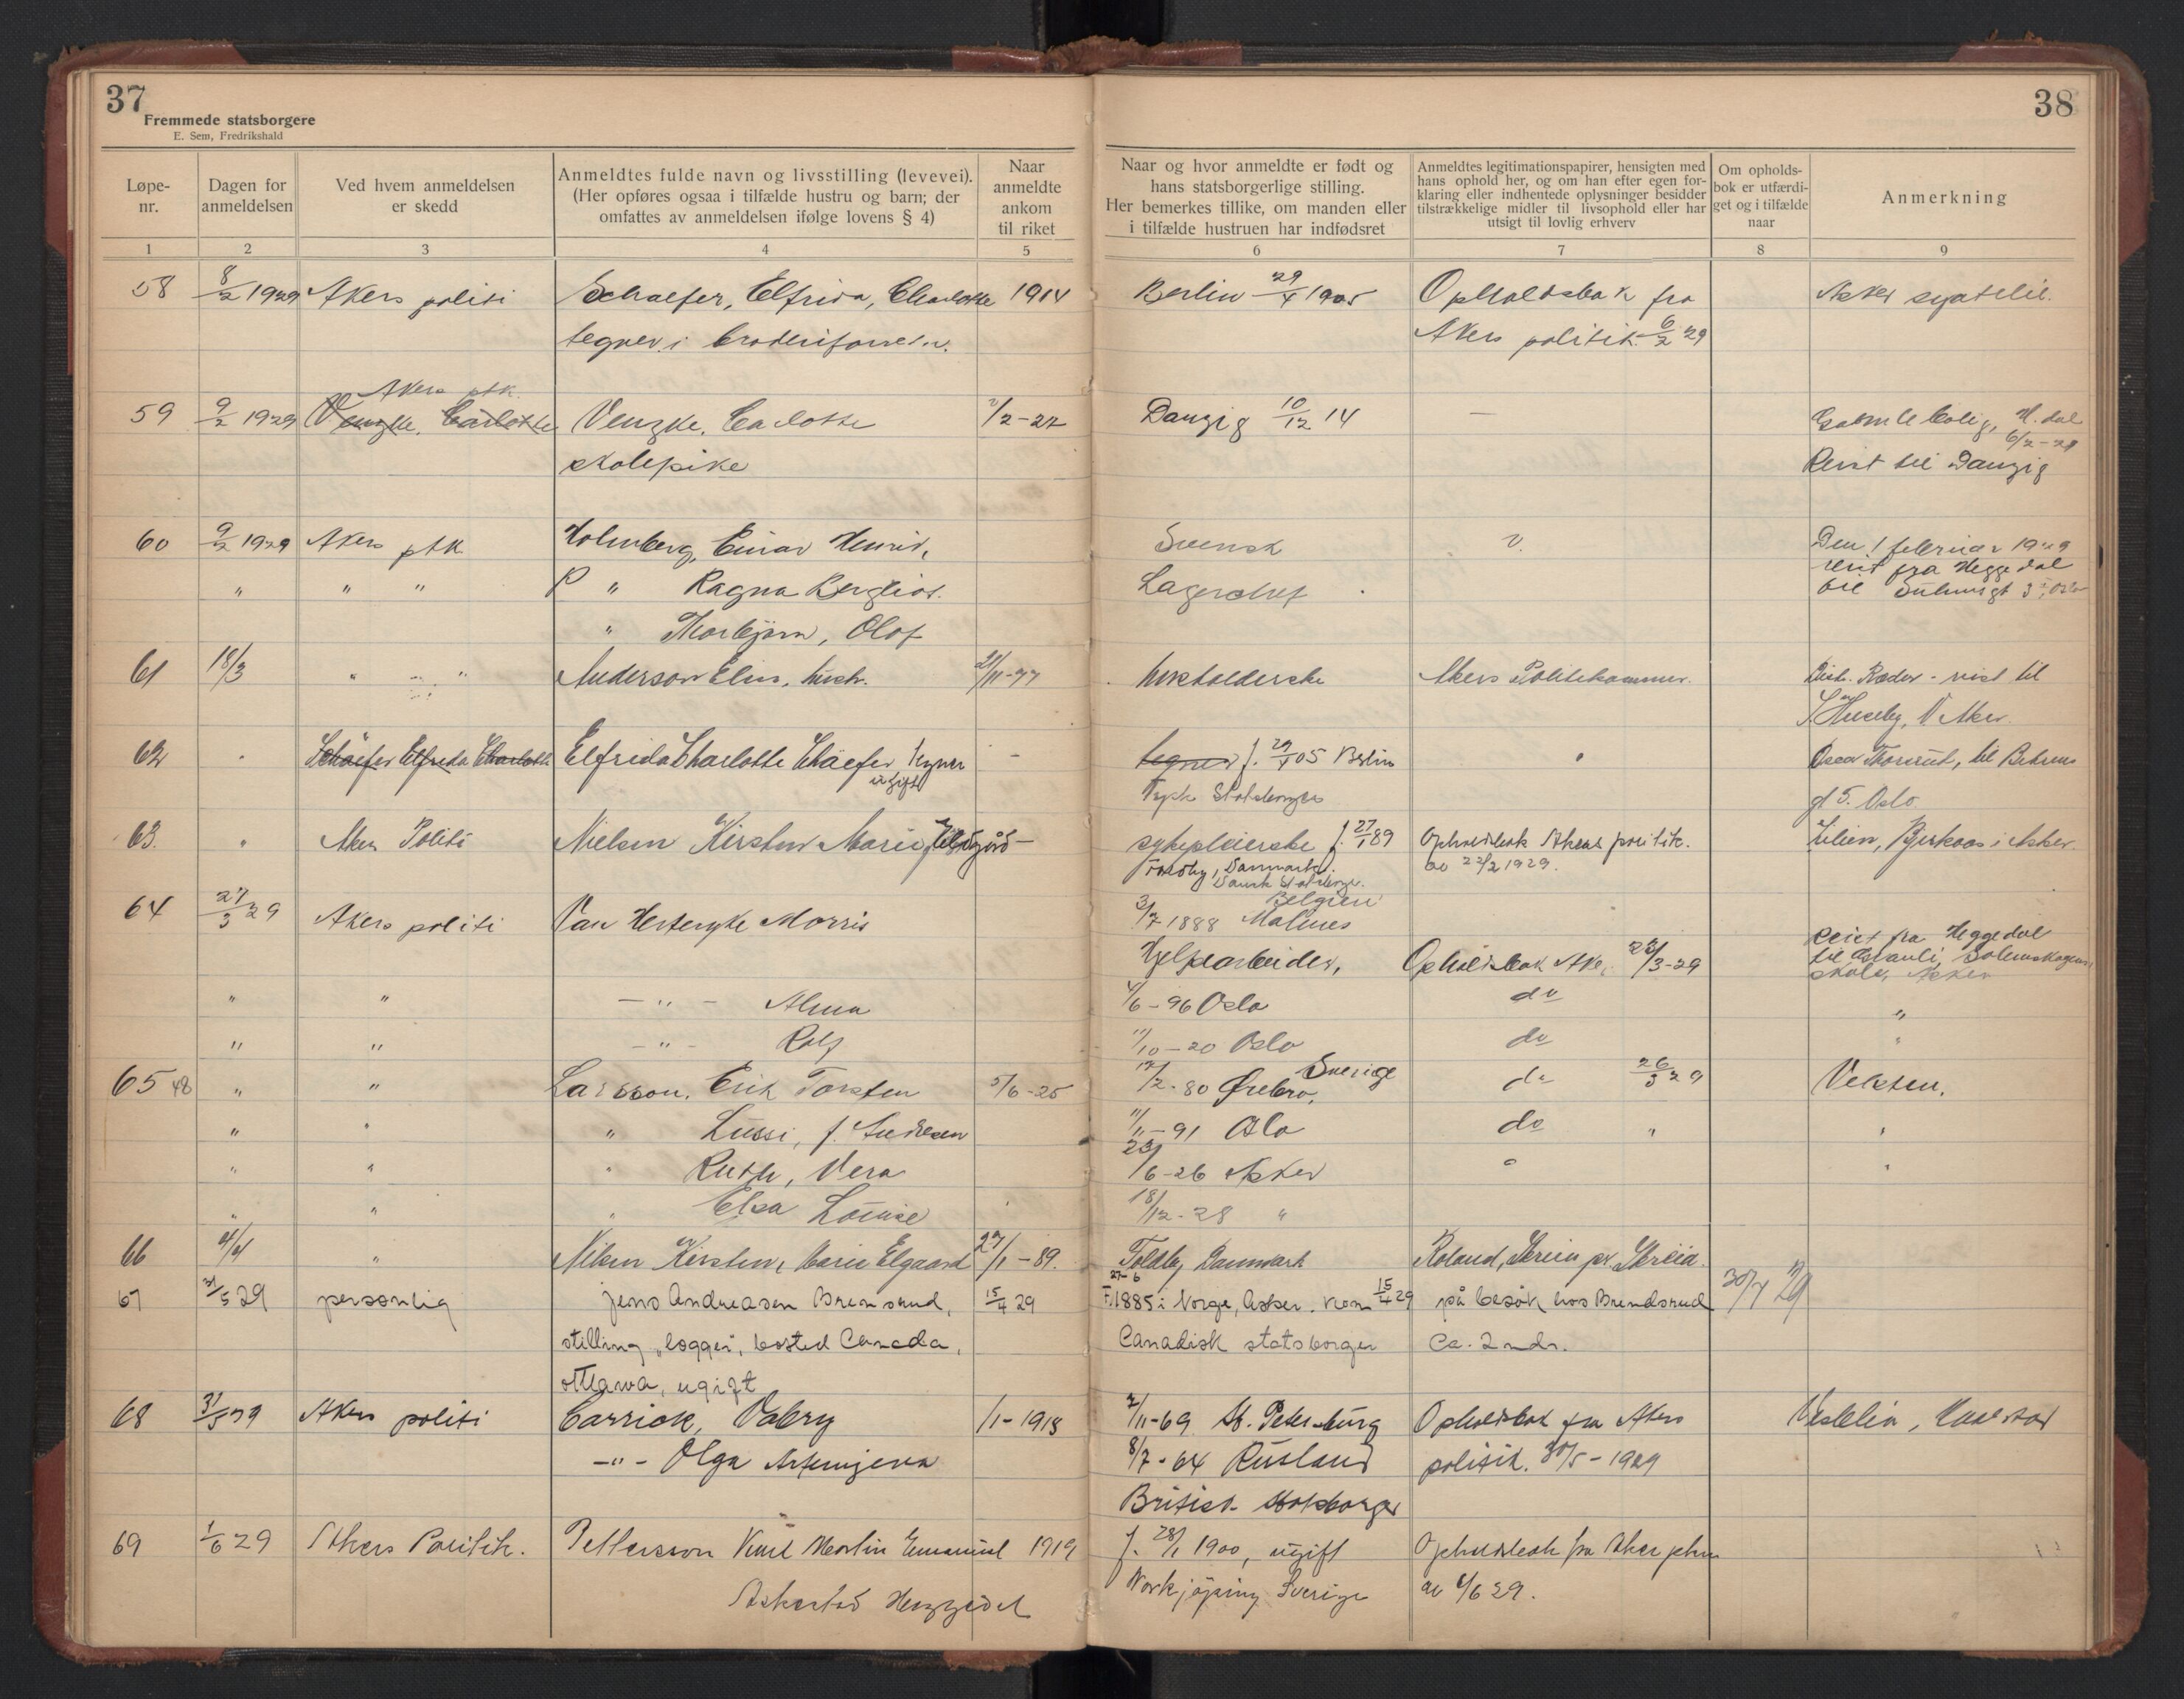 37
Fremmede statsborgere
E. Sem, Fredrikshald
38
Løpe-
nr.
Dagen for
anmeldelsen
Ved hvem anmeldelsen
er skedd
Anmeldtes fulde navn og livsstilling (levevei).
(Her opføres ogsaa i tilfælde hustru og barn; der
omfattes av anmeldelsen ifølge lovens § 4)
Naar
anmeldte
ankom
til riket
Naar og hvor anmeldte er født og
hans statsborgerlige stilling.
Her bemerkes tillike, om manden eller
i tilfælde hustruen har indfødsret
Anmeldtes legitimationspapirer, hensigten med
hans ophold her, og om han efter egen for-
klaring eller indhentede oplysninger besidder
tilstrækkelige midler til livsophold eller har
utsigt til lovlig erhverv
Om opholds-
bok er utfærdi-
get og i tilfælde
naar
Anmerkning
1 2 3 4 5 6 7 8 9
58 8/2 1929 Akers politi Schaefer, Elfrida, Charlotte 1914 Berlin 29/4 1905 Opholdsbok fra Asker
tegner i broderiforretn. Akers politik. 6/2 29
Akers ptk.
59 9/2 1929 Venzke, Carlotte Venzke, Carlotte /2-27 Danzig 10/12 14 — H. dal
skolepike 6/2-29
Reist til Danzig
60 9/2 1929 Akers ptk Holmberg, Einar Henrik, Svensk Den 1 februar 1929
" " " " Ragna Bergliot. Lagerchef reist fra Heggedal
" Thorbjørn, Olof til
61 18/3 " " Anderson Elin, hush. husholderske Akers Politikammer. reist til
Huseby, V Aker.
62 Schäefer Elfrida Charlotte Elfrida Charlotte Schäefer tegner — tegner f. 29/4 05 Berlin til Behrens
ugift Tysk Statsborger gt 5. Oslo
63. " Aker Politi Nielsen Kirsten Marie sykepleierske f. 27/1 89 Opholdsbok Akers politik.
Toldby, Danmark. av 22/2 1929.
Dansk Statsborger.
64 27/3 29 Akers politi Van Hertenryke Morris 3/7 1888 Malines Belgien
Hjelpearbeider, Opholdsbok Aker 23/3-29 Reist fra Heggedal
skole, Asker
" " — " — Alma /6-96 Oslo do "
" " — " — Rolf 11/10-20 Oslo do "
65 48 " " Larsson, Erik Torsten 5/6-25 17/2-80 Ørebro, Sverige do 26/3 29 Veksten.
" " " Lussi, f. Andresen 11/11-91 Oslo do " "
" " " Ruth, Vera 23/6-26 Asker " "
" " " Elsa Louise 18/12-28 "
66 4/4 " Nilsen Kirsten, Marie Elgaard 27/1-89. Toldby Danmark Roland, Skreia pr. Skreia.
67 31/5 29 personlig Jens Andreasen Bremsrud, 15/4 29 F. 27-6 1885 i Norge, Asker. Kom 15/4 29 på besøk hos Brendsrud
stilling "logger", bosted Canada, Canadisk statsborger Ca. 2 mdr.
Ottawa, ugift
68 31/5 29 Akers politi Carrick, Valery /1-1918 7/11-69 St. Petersburg Opholdsbok fra Akers Vestlia, Hvalstad
—"— Olga Artemjeva 8/7-64 Rusland politik. 30/5-1929
British statsborger
69 1/6 29 Akers Politik. Pettersson Karl Martin Emanuel 1919 f. 28/1 1900, ugift Opholdsbok fra Aker
Askestad Heggedal Norkjøping Sverige av 1/6 29.